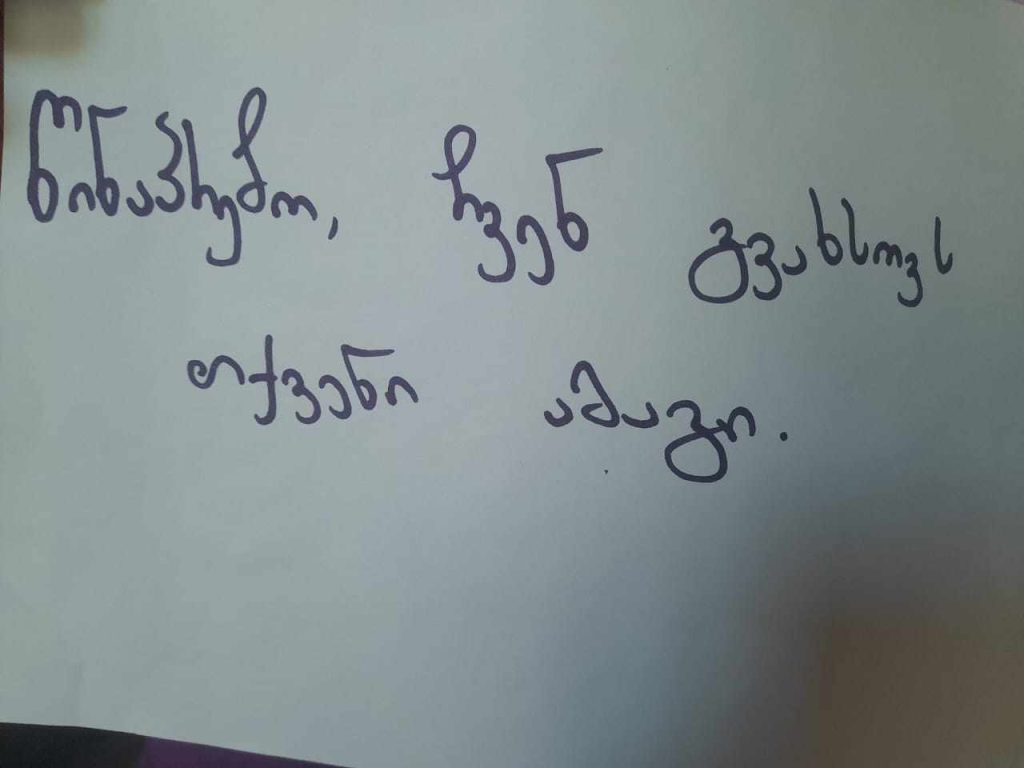 წინაპრებო, ჩვენ გვახსოვს
თქვენი ამაგი.